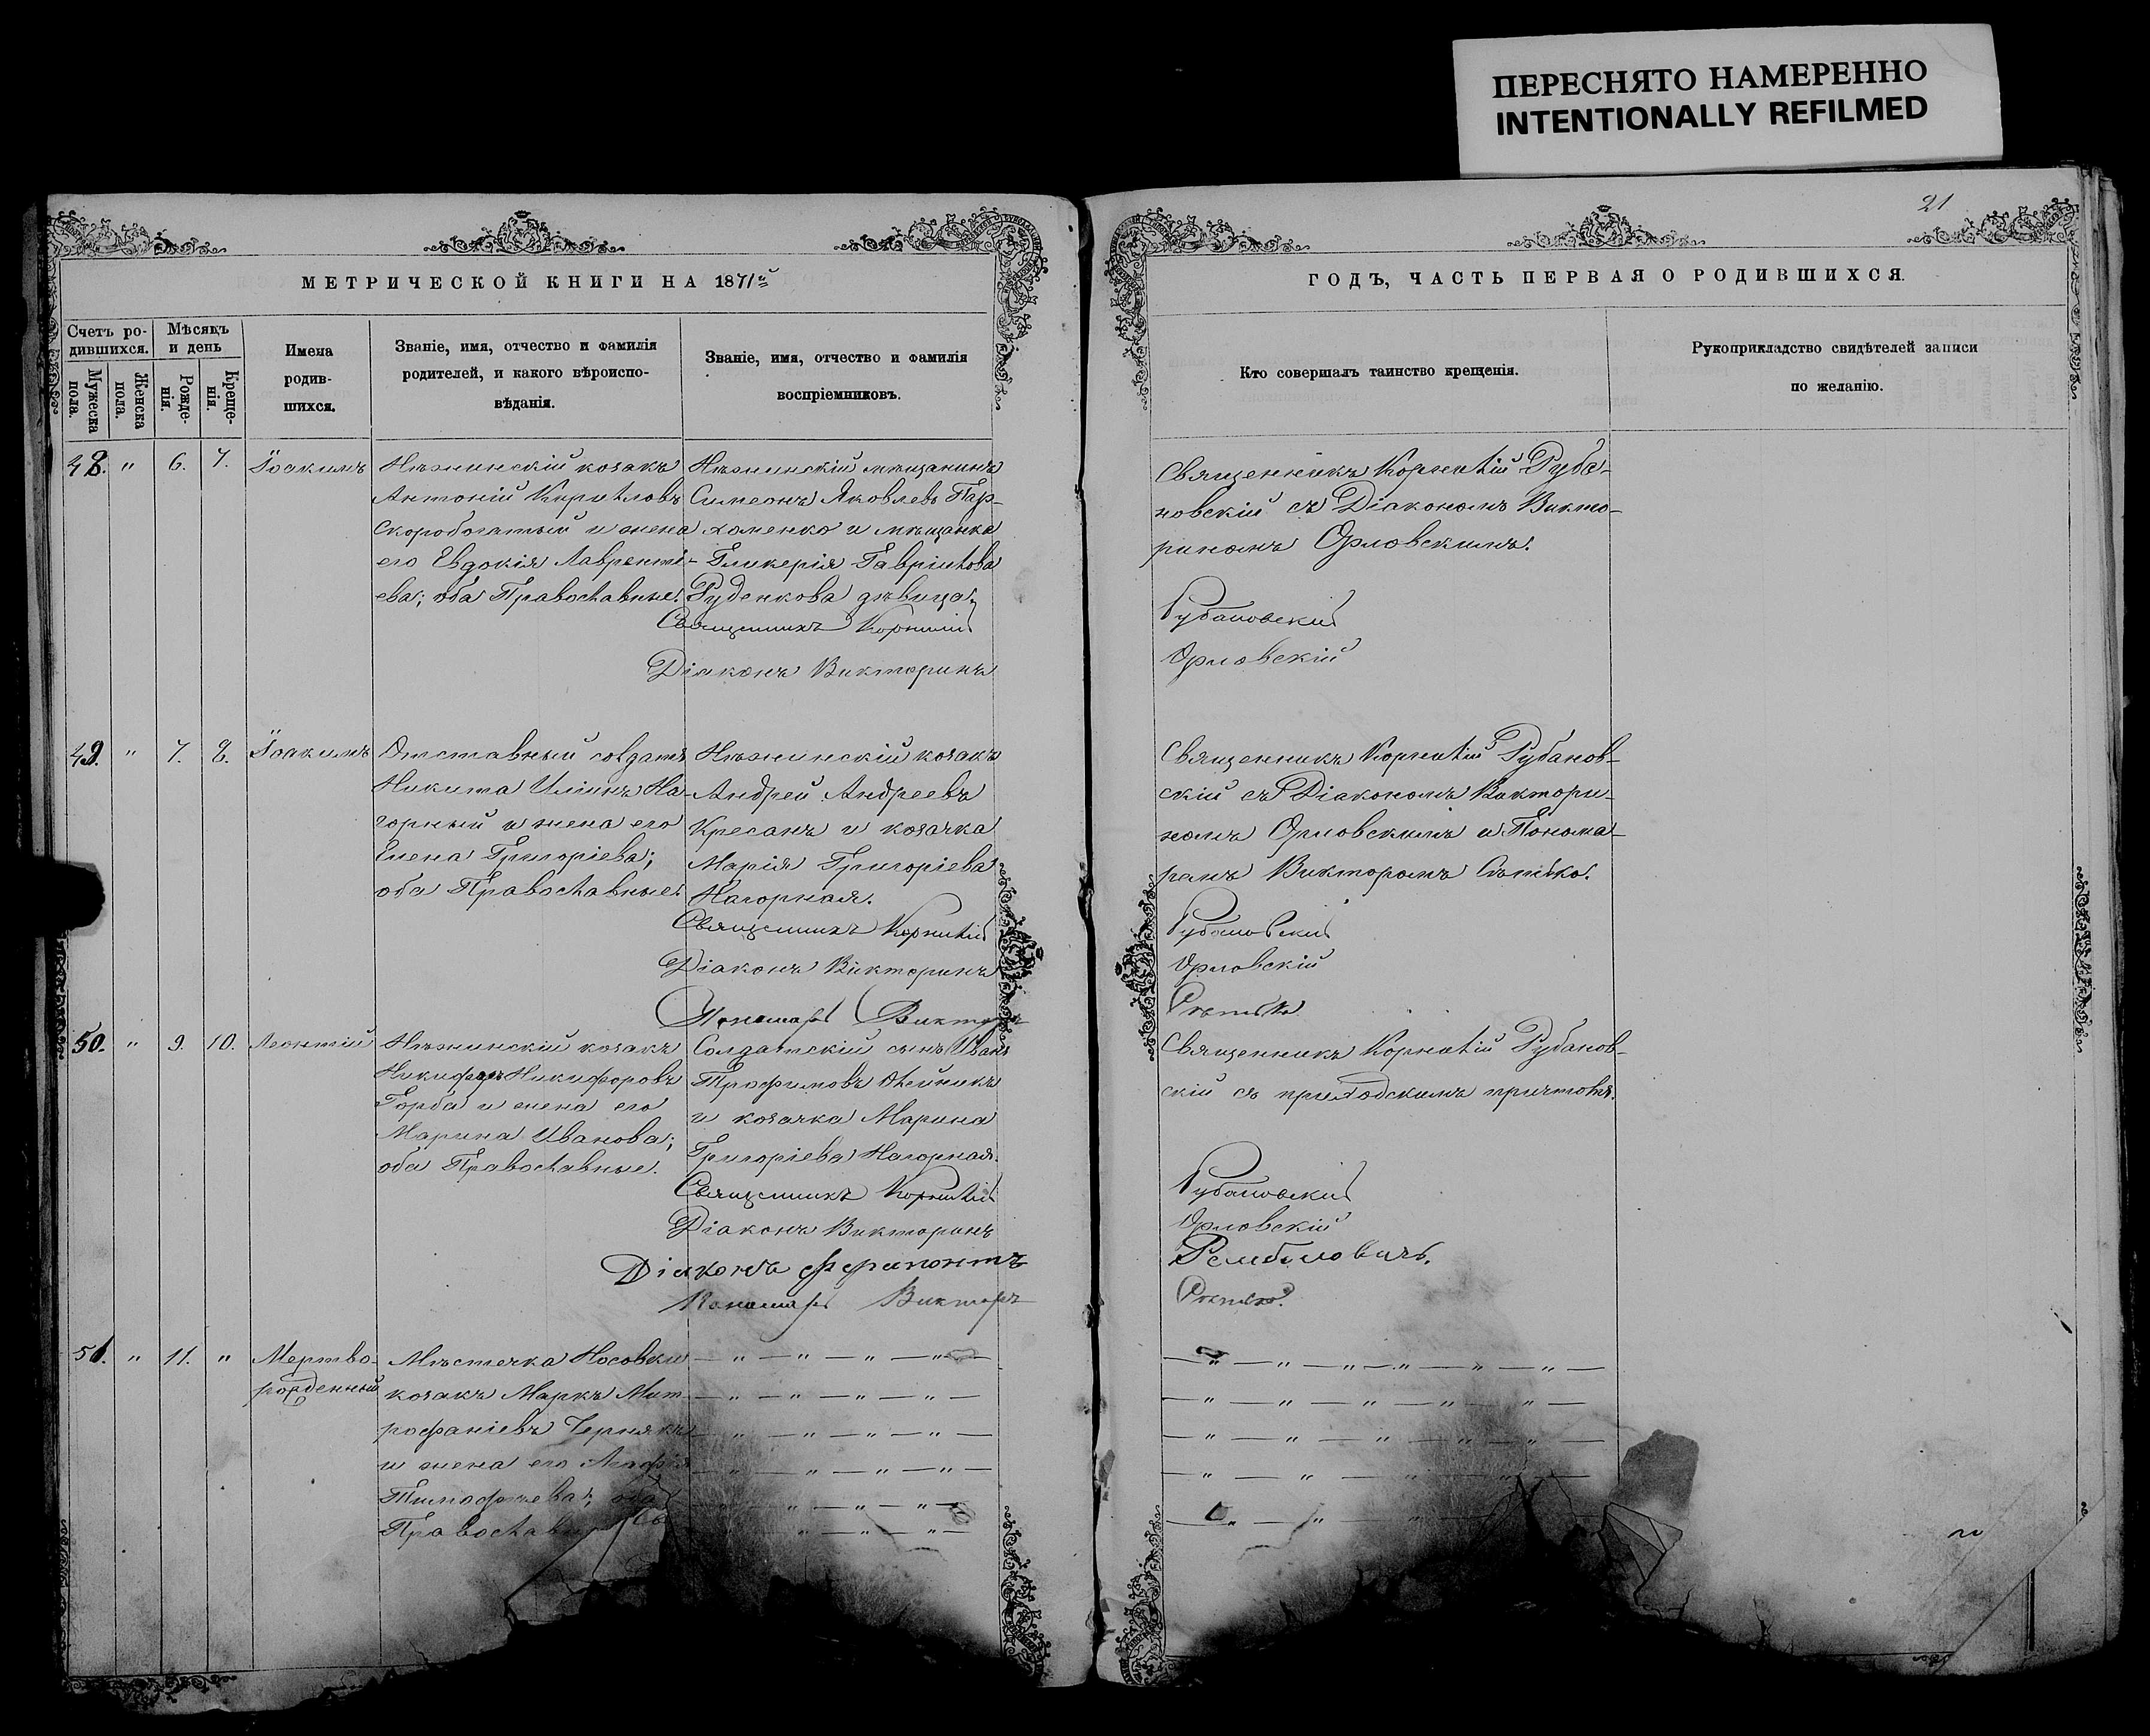 ПЕРЕСНЯТО НАМЕРЕННО
INTENTIONALLY REFILMED
21
МЕТРИЧЕСКОЙ КНИГИ НА 1871й
ГОДЪ, ЧАСТЬ ПЕРВАЯ О РОДИВШИХСЯ.
Счетъ ро-
дившихся.
Мужеска
пола.
Женска
пола.
Мѣсяцъ
и день
Рожде-
нія.
Креще-
нія.
Имена
родив-
шихся.
Званіе, имя, отчество и фамилія
родителей, и какого вѣроиспо-
вѣданія.
Званіе, имя, отчество и фамилія
воспріемниковъ.
Кто совершалъ таинство крещенія.
Рукоприкладство свидѣтелей записи
по желанію.
48. " 6. 7. Іоакимъ
Нѣжинскій козакъ
Антоній Кириловъ
Скоробогатый и жена
его Евдокія Лаврентi-
ева; оба Православные.
Нѣжинскій мѣщанинъ
Симеонъ Яковлевъ Пар-
хоменко и мѣщанка
Гликерія Гавріилова
Руденкова дѣвица.
Священникъ Корнилій Руба-
новскій съ Діакономъ Викто-
риномъ Орловскимъ.
Священникъ Корнилій Рубановскій
Діаконъ Викторинъ Орловскій
49. " 7. 8. Іоакимъ
Отставный солдатъ
Никита Илiинъ На-
горный и жена его
Елена Григоріева;
оба Православные.
Нѣжинскій козакъ
Андрей Андреевъ
Кресанъ и козачка
Марія Григоріева
Нагорная.
Священникъ Корнилій Рубанов-
скій съ Діакономъ Викторі-
номъ Орловскимъ и Понома-
ремъ Викторомъ
Священникъ Корнилій Рубановскій
Діаконъ Викторинъ Орловскій
Пономарь Викторъ
50. " 9. 10. Леонтій
Нѣжинскій козакъ
Никифоръ Никифоровъ
Горба и жена его
Марина Иванова;
оба Православные.
Солдатскій сынъ Иванъ
Трофимовъ Олейникъ
и козачка Марина
Григоріева Нагорная.
Священникъ Корнилій Рубанов-
скій съ приходскимъ причтомъ.
Священникъ Корнилій Рубановскій
Діаконъ Викторинъ Орловскій
Діаконъ Ферапонтъ
Пономарь Викторъ
51. " 11. " Мертво-
рожденный
Мѣстечка Носовки
козакъ Маркъ Мит-
рофаніевъ Чернякъ
и жена его
Тимофеева; оба